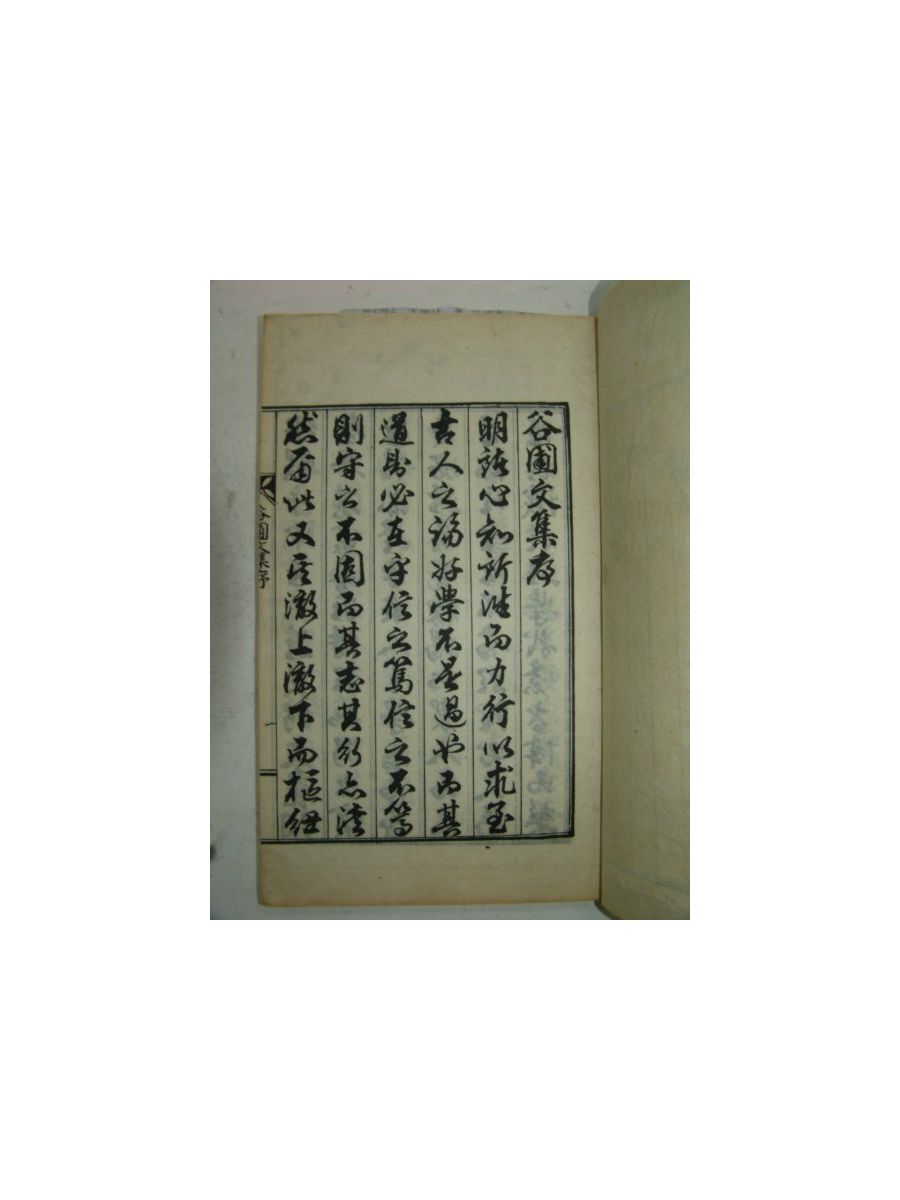 谷圃文集序
明諸心知所往而力行以求至
古人之論好學不是過也而其
道則必在乎信之篤信之不篤
則守之不固而其志其行亦淺
然爾此又是澈上澈下而樞紐
谷圃文集序
一